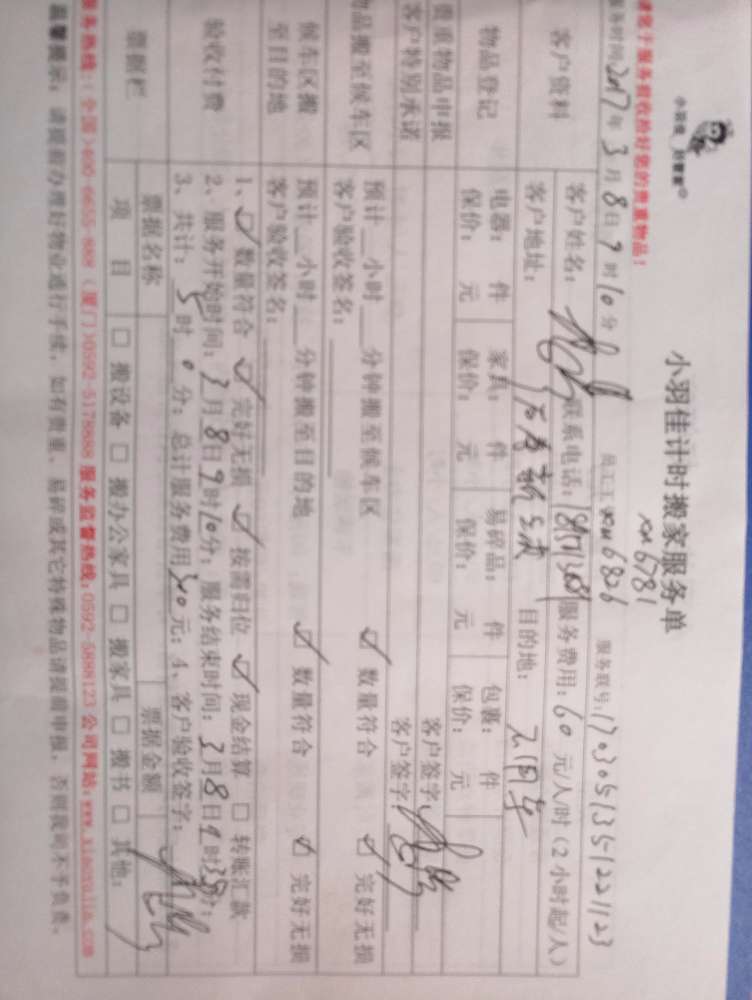 小羽佳计时搬家服务单
xm6781
服务时间:2017年3月8日9时10分 员工工 xm6826 服务联号:170305135-1221123
客户资料
客户姓名: 联系电话: 服务费用:60元/人/时(2小时起/人)
客户地址: 目的地:
物品登记
电器: 件 家具: 件 易碎品: 件 包裹: 件
保价: 元 保价: 元 保价: 元 保价: 元
贵重物品申报 客户签字
客户特别承诺 客户签字
物品搬至候车区
预计__小时__分钟搬至候车区 ☑ 数量符合 ☑ 完好无损
客户验收签名:
候车区搬至目的地
预计__小时__分钟搬至目的地 ☑ 数量符合 ☑ 完好无损
客户验收签名:
验收付费
1、☑ 数量符合 ☑ 完好无损 ☑ 按需归位 ☑ 现金结算 □ 转账汇款
2、服务开始时间:3月8日9时10分;服务结束时间:3月8日 时 分;
3、共计:5时0分;总计服务费用 元;4、客户验收签字:
票据栏
票据名称 票据金额
项 目 □ 搬设备 □ 搬办公家具 □ 搬家具 □ 搬书 □ 其他:
服务热线:(全国)400-6655-888 (厦门)0592-5178888 服务监督热线:0592-5888123 公司网站:www.xiaoyujia.com
温馨提示:请提前办理好物业通行手续,如有贵重、易碎或其它特殊物品请提前申报,否则我司不予负责。